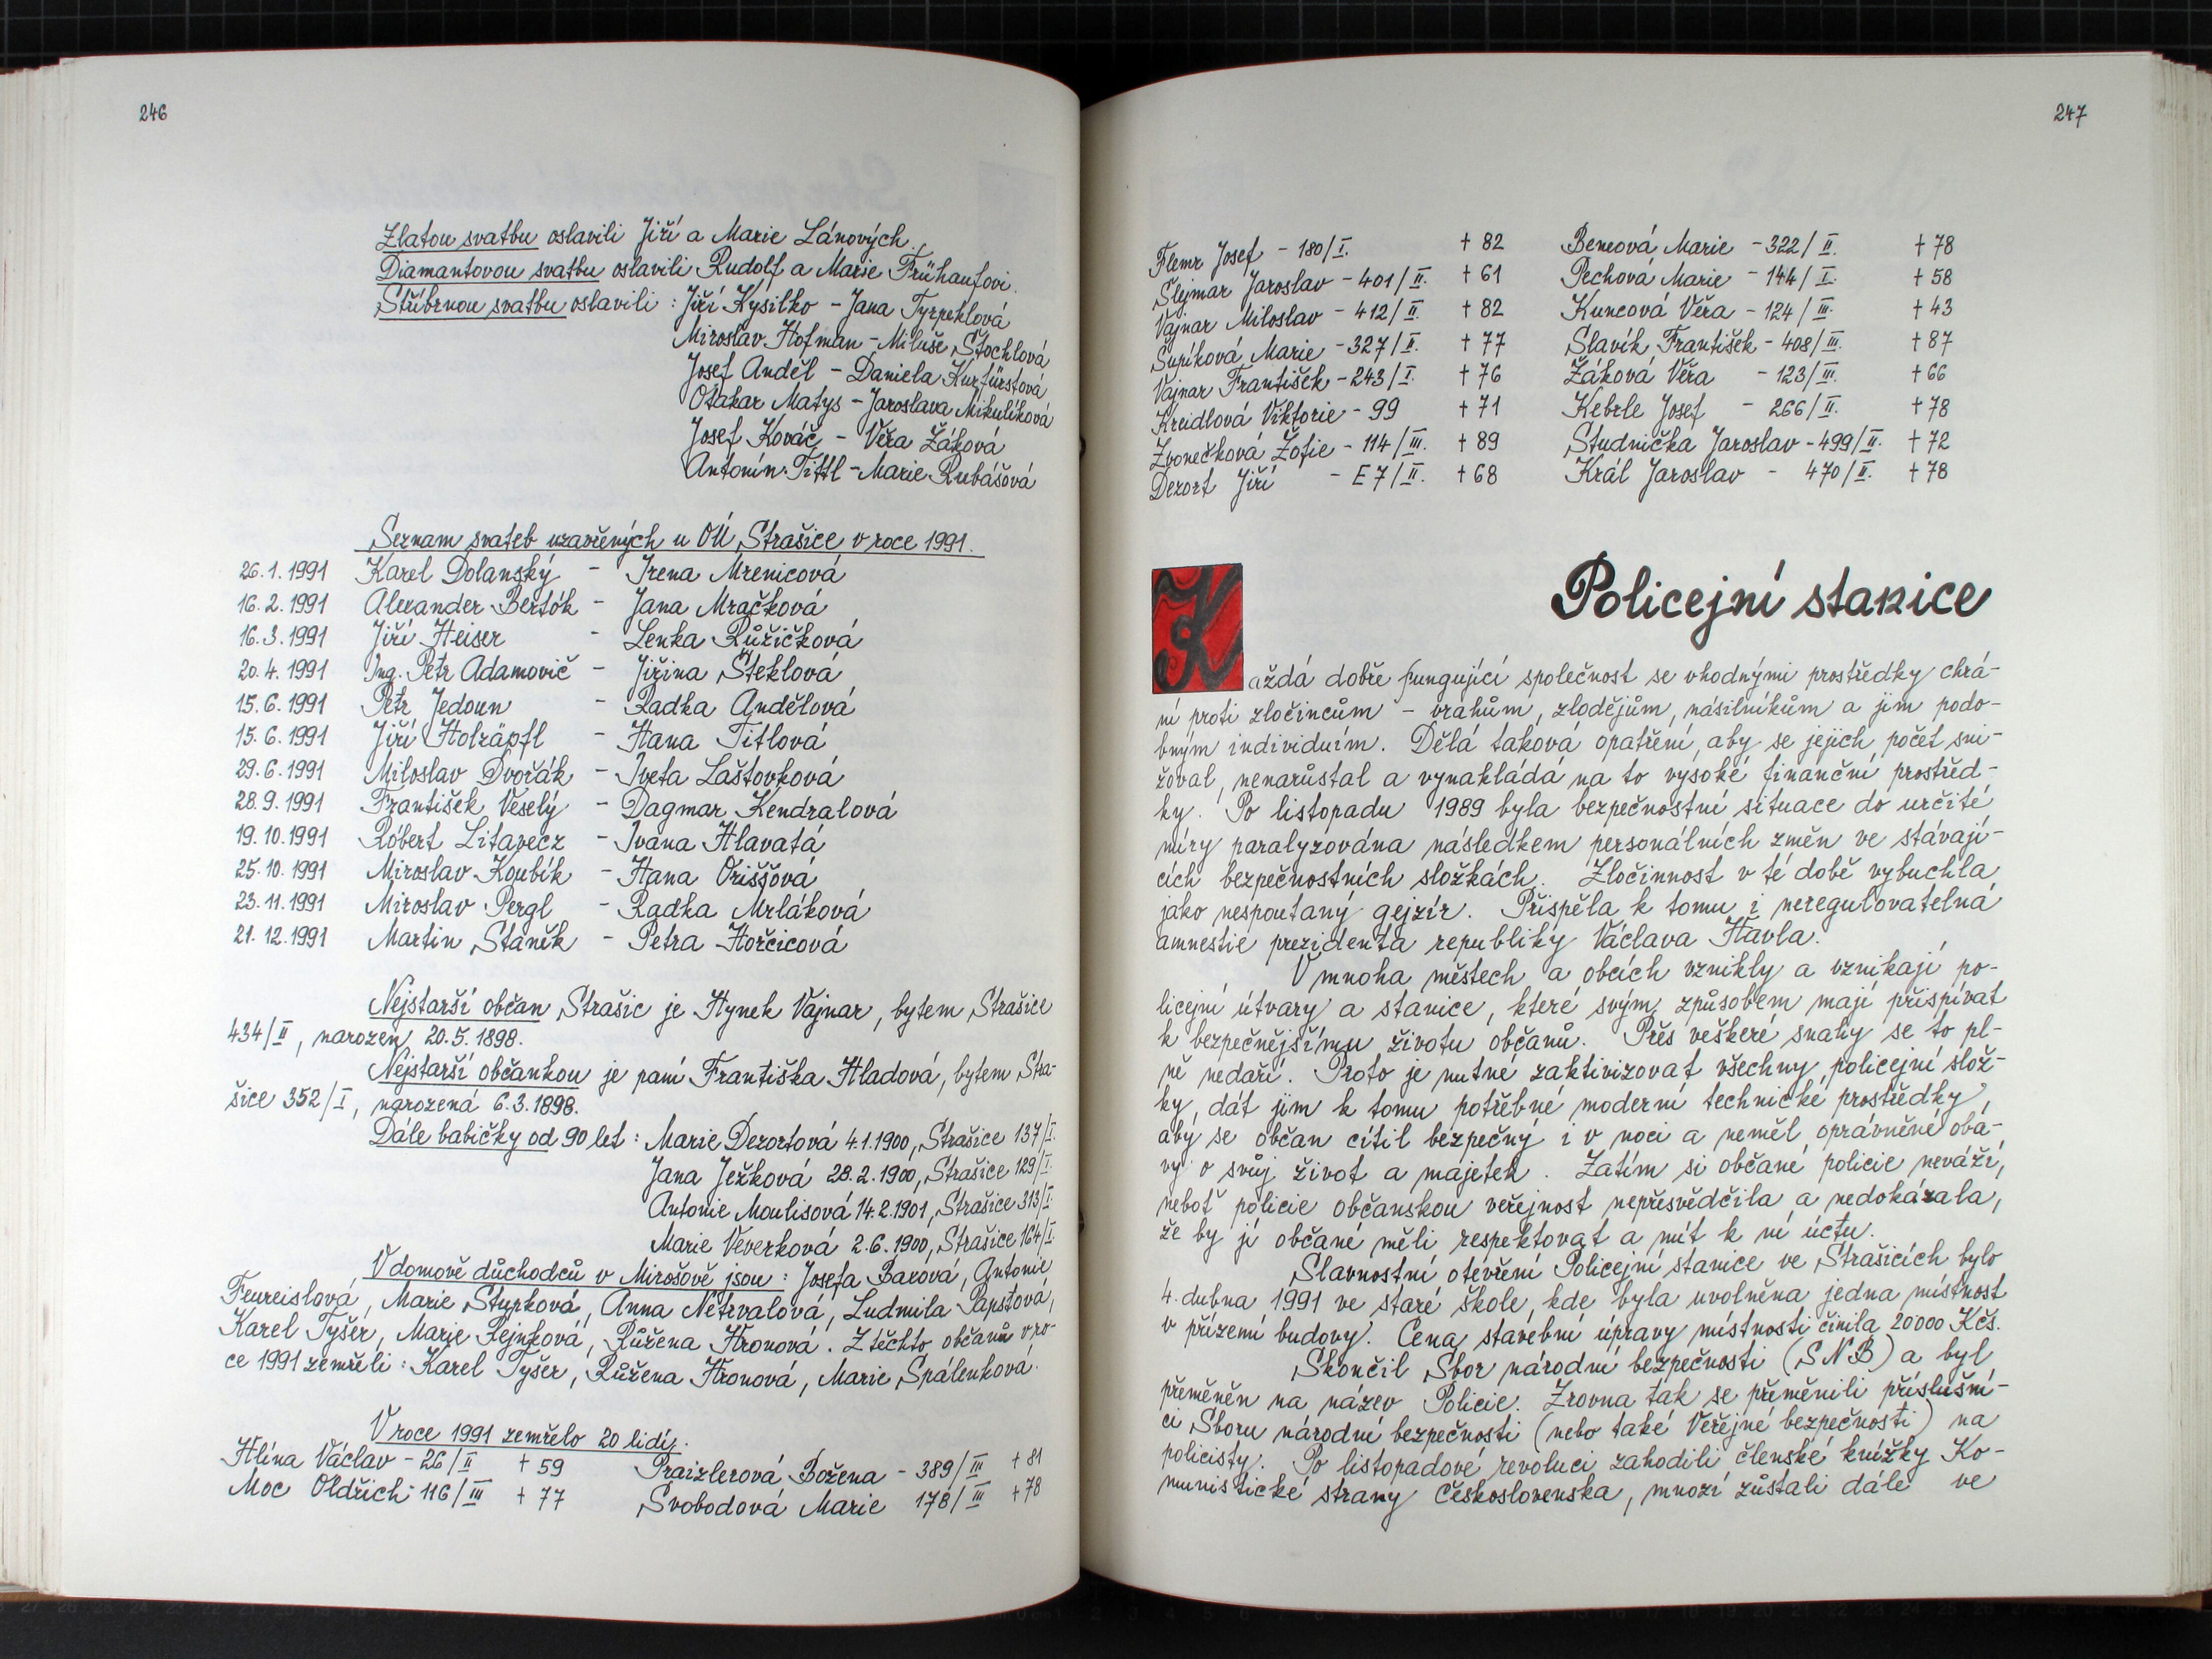 246
Zlatou svatbu oslavili Jiří a Marie Lánových.
Diamantovou svatbu oslavili Rudolf a Marie Frühaufovi.
Stříbrnou svatbu oslavili : Jiří Kysilko - Jana Tyrpeklová
Miroslav Hofman - Miluše Štochlová
Josef Anděl - Daniela Kurfürstová
Otakar Matys - Jaroslava Mikulíková
Josef Kováč - Věra Žáková
Antonín Tittl - Marie Rubášová
Seznam svateb uzavřených u OÚ Strašice v roce 1991.
26.1.1991 Karel Dolanský - Irena Mrenicová
16.2.1991 Alexander Bertók - Jana Mračková
16.3.1991 Jiří Heiser - Lenka Růžičková
20.4.1991 Ing. Petr Adamovič - Jiřina Šteklová
15.6.1991 Petr Jedoun - Radka Andělová
15.6.1991 Jiří Holzäpfl - Hana Titlová
29.6.1991 Miloslav Dvořák - Iveta Laštovková
28.9.1991 František Veselý - Dagmar Kendralová
19.10.1991 Róbert Litavecz - Ivana Hlavatá
25.10.1991 Miroslav Koubík - Hana Oriššová
23.11.1991 Miroslav Pergl - Radka Mrláková
21.12.1991 Martin Staněk - Petra Hořčicová
Nejstarší občan Strašic je Hynek Vajnar, bytem Strašice
434/II, narozen 20.5.1898.
Nejstarší občankou je paní Františka Hladová, bytem Stra-
šice 352/I, narozená 6.3.1898.
Dále babičky od 90 let : Marie Dezortová 4.1.1900, Strašice 137/I.
Jana Ježková 28.2.1900, Strašice 129/I.
Antonie Moulisová 14.2.1901, Strašice 313/I.
Marie Veverková 2.6.1900, Strašice 164/I.
V domově důchodců v Mirošově jsou : Josefa Barová, Antonie
Feureislová, Marie Stupková, Anna Netrvalová, Ludmila Papstová,
Karel Tyšer, Marie Rejnková, Růžena Hronová. Z těchto občanů v ro-
ce 1991 zemřeli : Karel Tyšer, Růžena Hronová, Marie Spálenková.
V roce 1991 zemřelo 20 lidí.
Hlína Václav - 26/II † 59 Praizlerová Božena - 389/III † 81
Moc Oldřich - 116/III † 77 Svobodová Marie 178/III † 78
247
Flemr Josef - 180/I. † 82 Bencová Marie - 322/II. † 78
Šlejmar Jaroslav - 401/II. † 61 Pechová Marie - 144/I. † 58
Vajnar Miloslav - 412/II. † 82 Kuncová Věra - 124/III. † 43
Šupíková Marie - 327/I. † 77 Slavík František - 408/III. † 87
Vajnar František - 243/I. † 76 Žáková Věra - 123/III. † 66
Kreidlová Viktorie - 99 † 71 Keberle Josef - 266/II. † 78
Zvonečková Žofie - 114/III. † 89 Studnička Jaroslav - 499/II. † 72
Dezort Jiří - E7/II. † 68 Král Jaroslav - 470/II. † 78
Policejní stanice
Každá dobře fungující společnost se vhodnými prostředky chrá-
ní proti zločincům - vrahům, zlodějům, násilníkům a jim podo-
bným individuím. Dělá taková opatření, aby se jejich počet sni-
žoval, nenarůstal a vynakládá na to vysoké finanční prostřed-
ky. Po listopadu 1989 byla bezpečnostní situace do určité
míry paralyzována následkem personálních změn ve stávají-
cích bezpečnostních složkách. Zločinnost v té době vybuchla
jako nespoutaný gejzír. Přispěla k tomu i neregulovatelná
amnestie prezidenta republiky Václava Havla.
V mnoha městech a obcích vznikly a vznikají po-
licejní útvary a stanice, které svým způsobem mají přispívat
k bezpečnějšímu životu občanů. Přes veškeré snahy se to pl-
ně nedaří. Proto je nutné zaktivizovat všechny policejní slož-
ky, dát jim k tomu potřebné moderní technické prostředky,
aby se občan cítil bezpečný i v noci a neměl oprávněné oba-
vy o svůj život a majetek. Zatím si občané policie neváží,
neboť policie občanskou veřejnost nepřesvědčila a nedokázala,
že by ji občané měli respektovat a mít k ní úctu.
Slavnostní otevření Policejní stanice ve Strašicích bylo
4. dubna 1991 ve staré škole, kde byla uvolněna jedna místnost
v přízemí budovy. Cena stavební úpravy místnosti činila 20000 Kčs.
Skončil Sbor národní bezpečnosti (SNB) a byl
přeměněn na název Policie. Zrovna tak se přeměnili příslušní-
ci Sboru národní bezpečnosti (nebo také Veřejné bezpečnosti) na
policisty. Po listopadové revoluci zahodili členské knížky Ko-
munistické strany Československa, mnozí zůstali dále ve